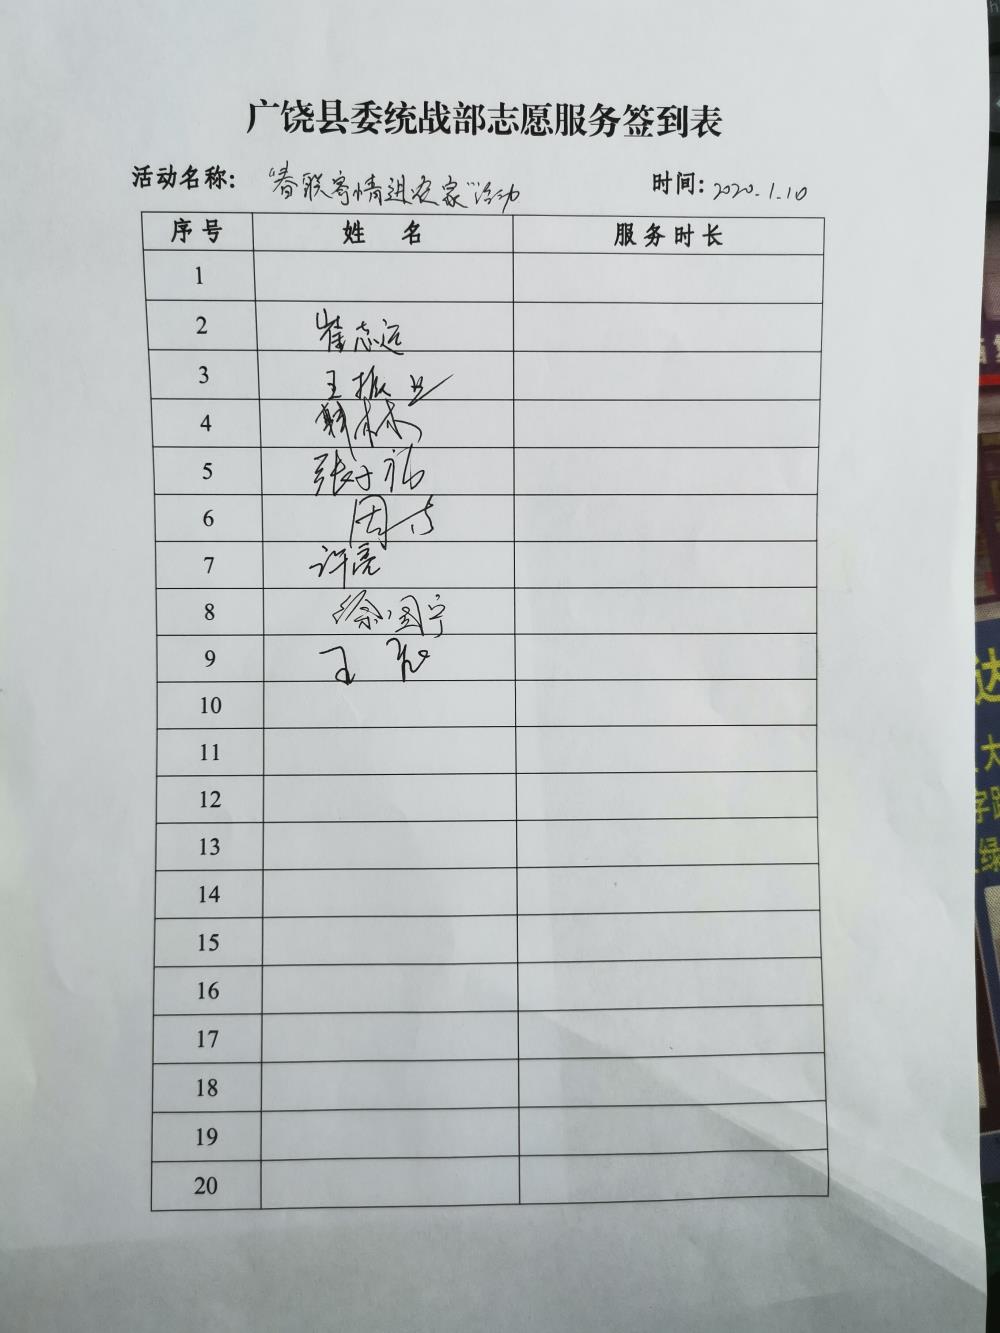 广饶县委统战部志愿服务签到表
活动名称: “春联寄情进农家”活动 时间: 2020.1.10
序号 姓 名 服务时长
1
2 崔志远
3 王振
4 林
5 张子
6 周
7 许亮
8 徐国宁
9 王
10
11
12
13
14
15
16
17
18
19
20
达
大
字
绿